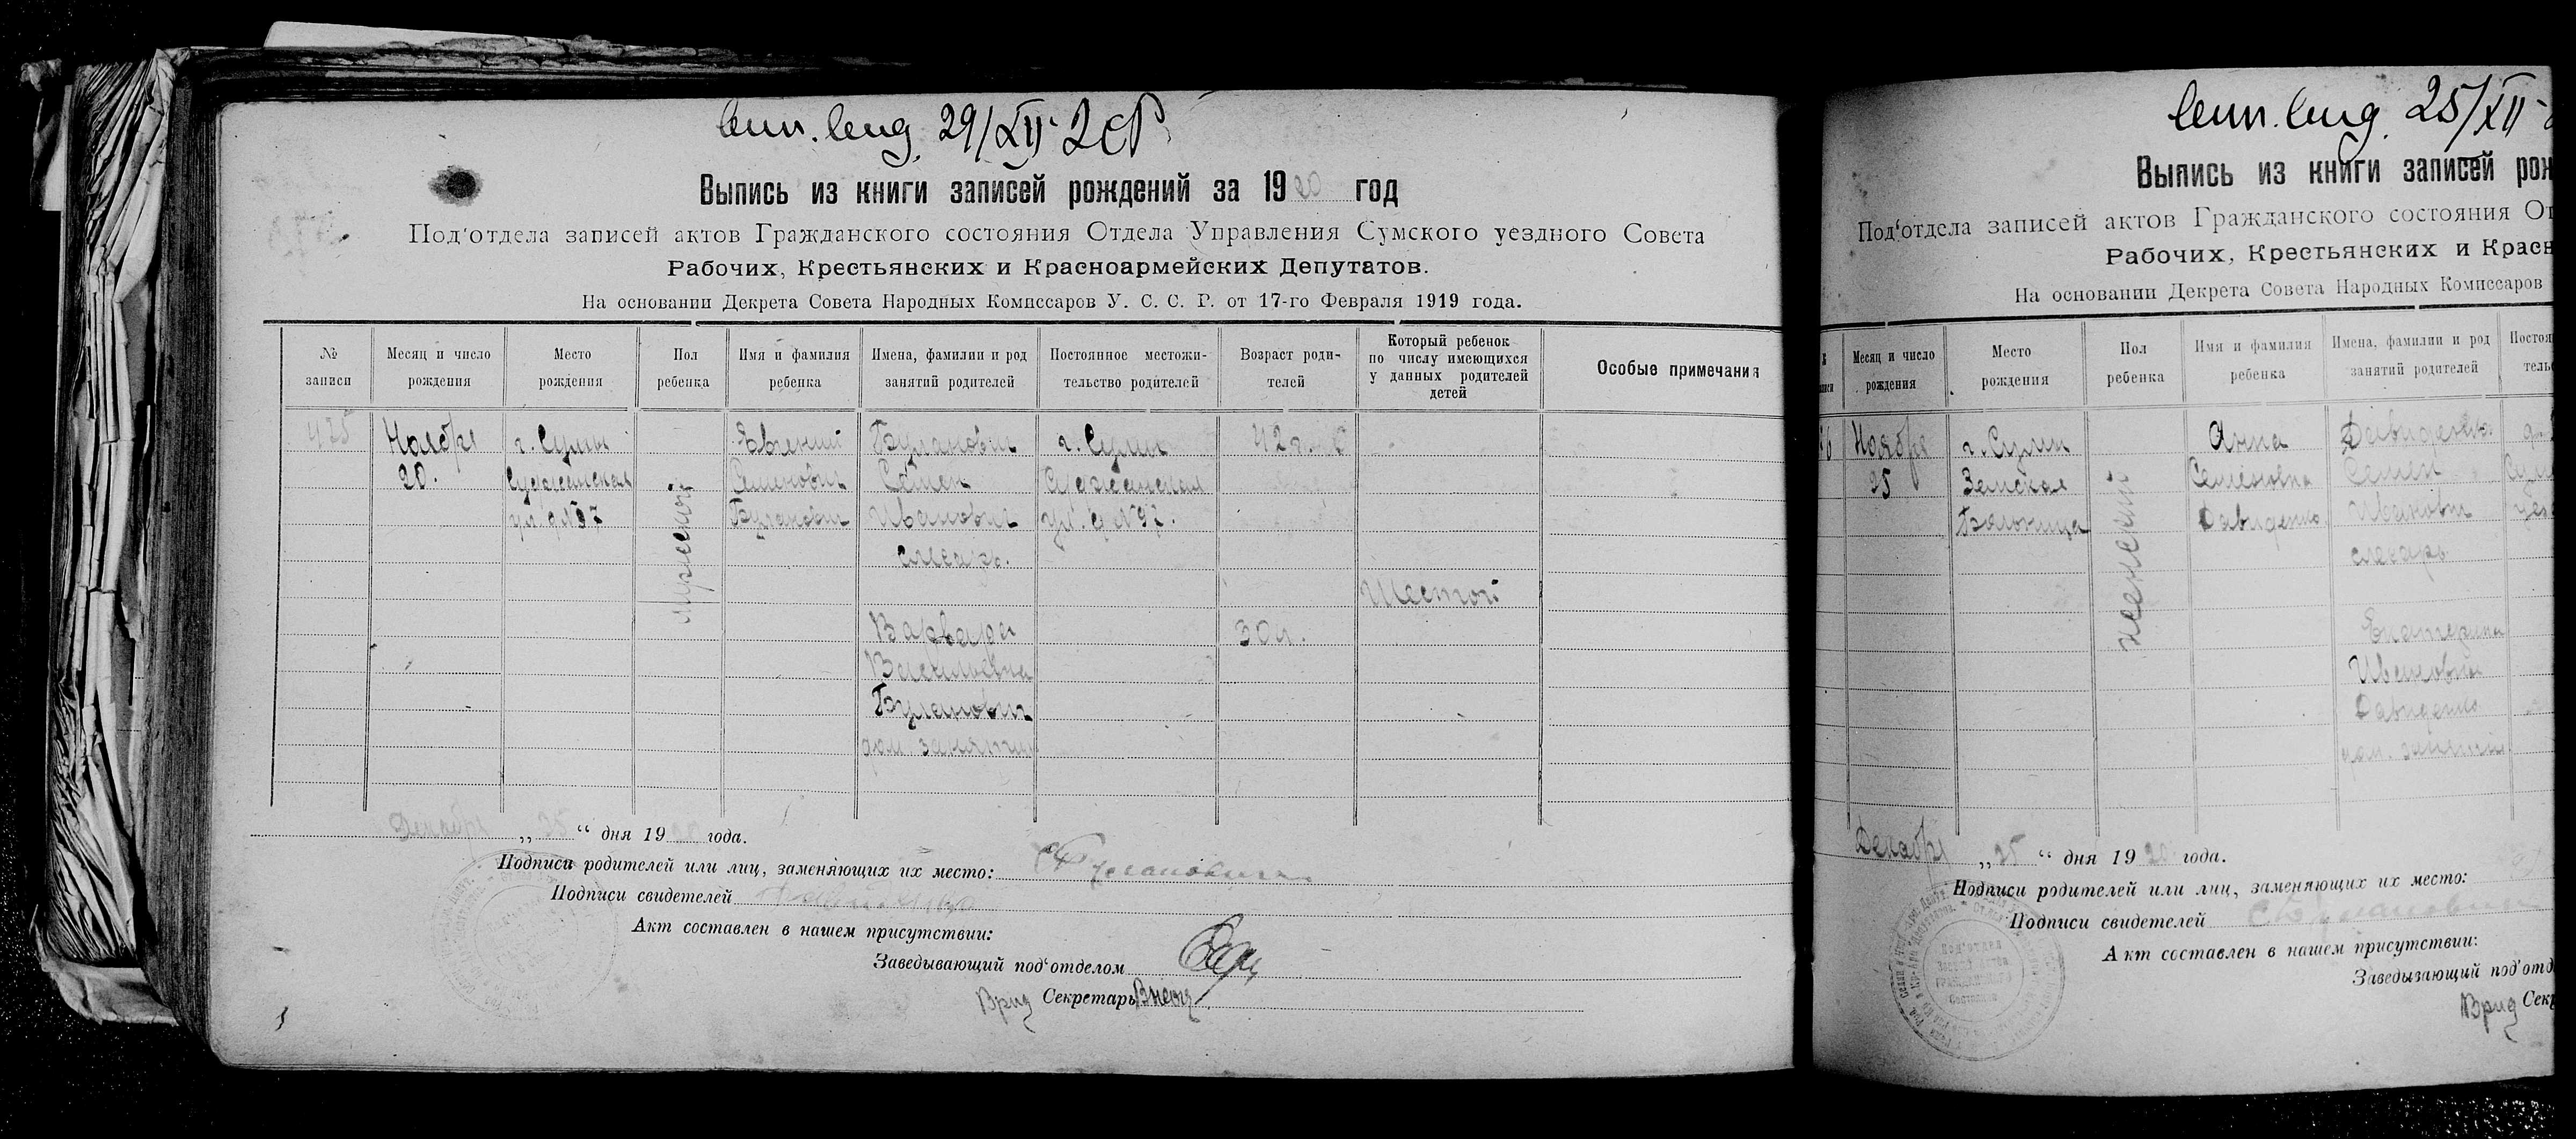 29/XII-20
Выпись из книги записей рождений за 1920 год
Под'отдела записей актов Гражданского состояния Отдела Управления Сумского уездного Совета
Рабочих, Крестьянских и Красноармейских Депутатов.
На основании Декрета Совета Народных Комиссаров У. С. С. Р. от 17-го Февраля 1919 года.
№ записи
Месяц и число рождения
Место рождения
Пол ребенка
Имя и фамилия ребенка
Имена, фамилии и род занятий родителей
Постоянное местожительство родителей
Возраст родителей
Который ребенок по числу имеющихся у данных родителей детей
Особые примечания
425
Ноябре 20.
г. Сумы
Суджанская
ул. д № 97
Мужеский
Евгений
Семенович
Буланович
Буланович
Семен
Иванович
слесарь.
г. Сумы
Суджанская
ул. д № 97.
42 г.
Шестой
Варвара
Васильевна
Буланович
дом. занятия
30 л.
Декабря „25“ дня 1920 года.
Подписи родителей или лиц, заменяющих их место: С Буланович
Подписи свидетелей
Акт составлен в нашем присутствии:
Заведывающий под'отделом
Врид Секретарь
25/XII-
Выпись из книги записей рож
Под'отдела записей актов Гражданского состояния От
Рабочих, Крестьянских и Красн
На основании Декрета Совета Народных Комиссаров
Месяц и число рождения
Место рождения
Пол ребенка
Имя и фамилия ребенка
Имена, фамилии и род занятий родителей
Постоя
тельс
6
Ноябре
25
г. Сумы
Земская
Больница
женский
Анна
Семеновна
Давиденко
Давиденко
Семен
Иванович
слесарь
Екатерина
Ивановна
Давиденко
дом. занятия
Декабря „25“ дня 1920 года.
Подписи родителей или лиц, заменяющих их место:
Подписи свидетелей С Буланович
Акт составлен в нашем присутствии:
Заведывающий под'отд
Врид Секр